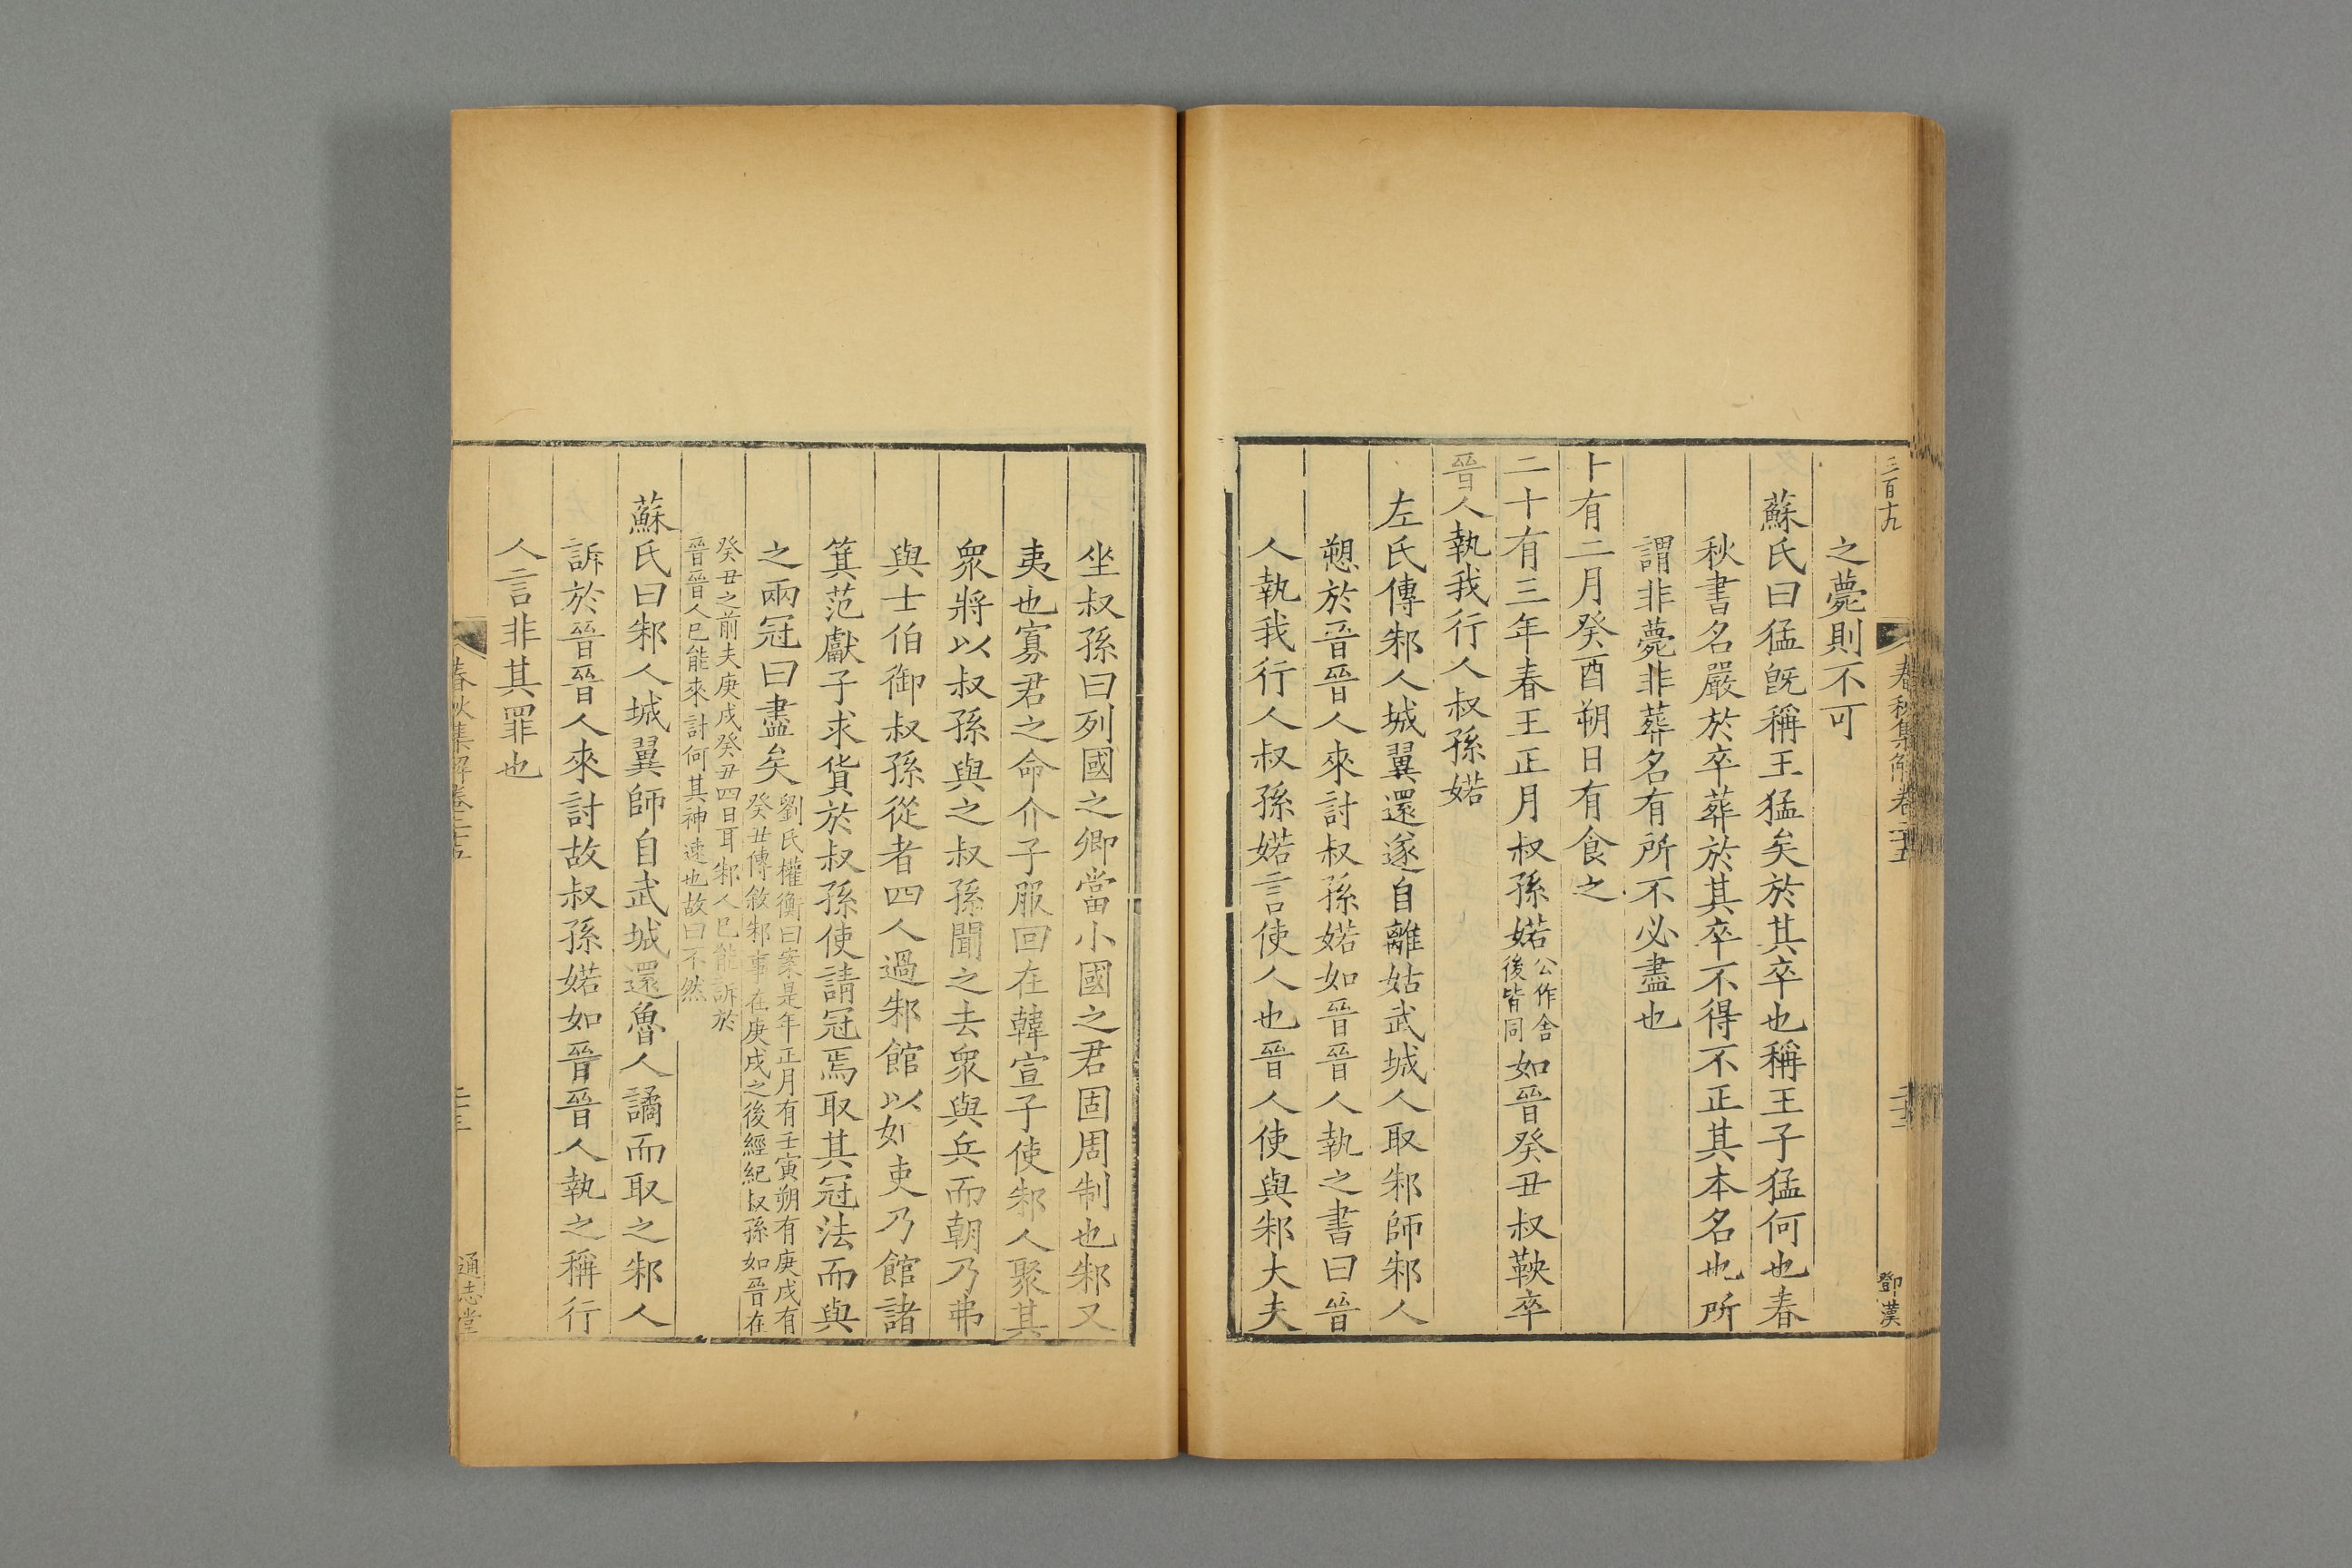 三百十九
春秋集解卷二十五
鄧漢
之薨則不可
蘇氏曰猛既稱王猛矣於其卒也稱王子猛何也春
秋書名嚴於卒葬於其卒不得不正其本名也所
謂非薨非葬名有所不必盡也
十有二月癸酉朔日有食之
二十有三年春王正月叔孫婼公作舍後皆同如晉癸丑叔鞅卒
晉人執我行人叔孫婼
左氏傳邾人城翼還遂自離姑武城人取邾師邾人
愬於晉晉人來討叔孫婼如晉晉人執之書曰晉
人執我行人叔孫婼言使人也晉人使與邾大夫
坐叔孫曰列國之卿當小國之君固周制也邾又
夷也寡君之命介子服回在韓宣子使邾人聚其
衆將以叔孫與之叔孫聞之去衆與兵而朝乃弗
與士伯御叔孫從者四人過邾館以如吏乃館諸
箕范獻子求貨於叔孫使請冠焉取其冠法而與
之兩冠曰盡矣劉氏權衡曰案是年正月有壬寅朔有庚戌有
癸丑傳敘邾事在庚戌之後經紀叔孫如晉在
癸丑之前夫庚戌癸丑四日耳邾人已能訴於
晉晉人已能來討何其神速也故曰不然
蘇氏曰邾人城翼師自武城還魯人譎而取之邾人
訴於晉晉人來討故叔孫婼如晉晉人執之稱行
人言非其罪也
春秋集解卷二十五
通志堂